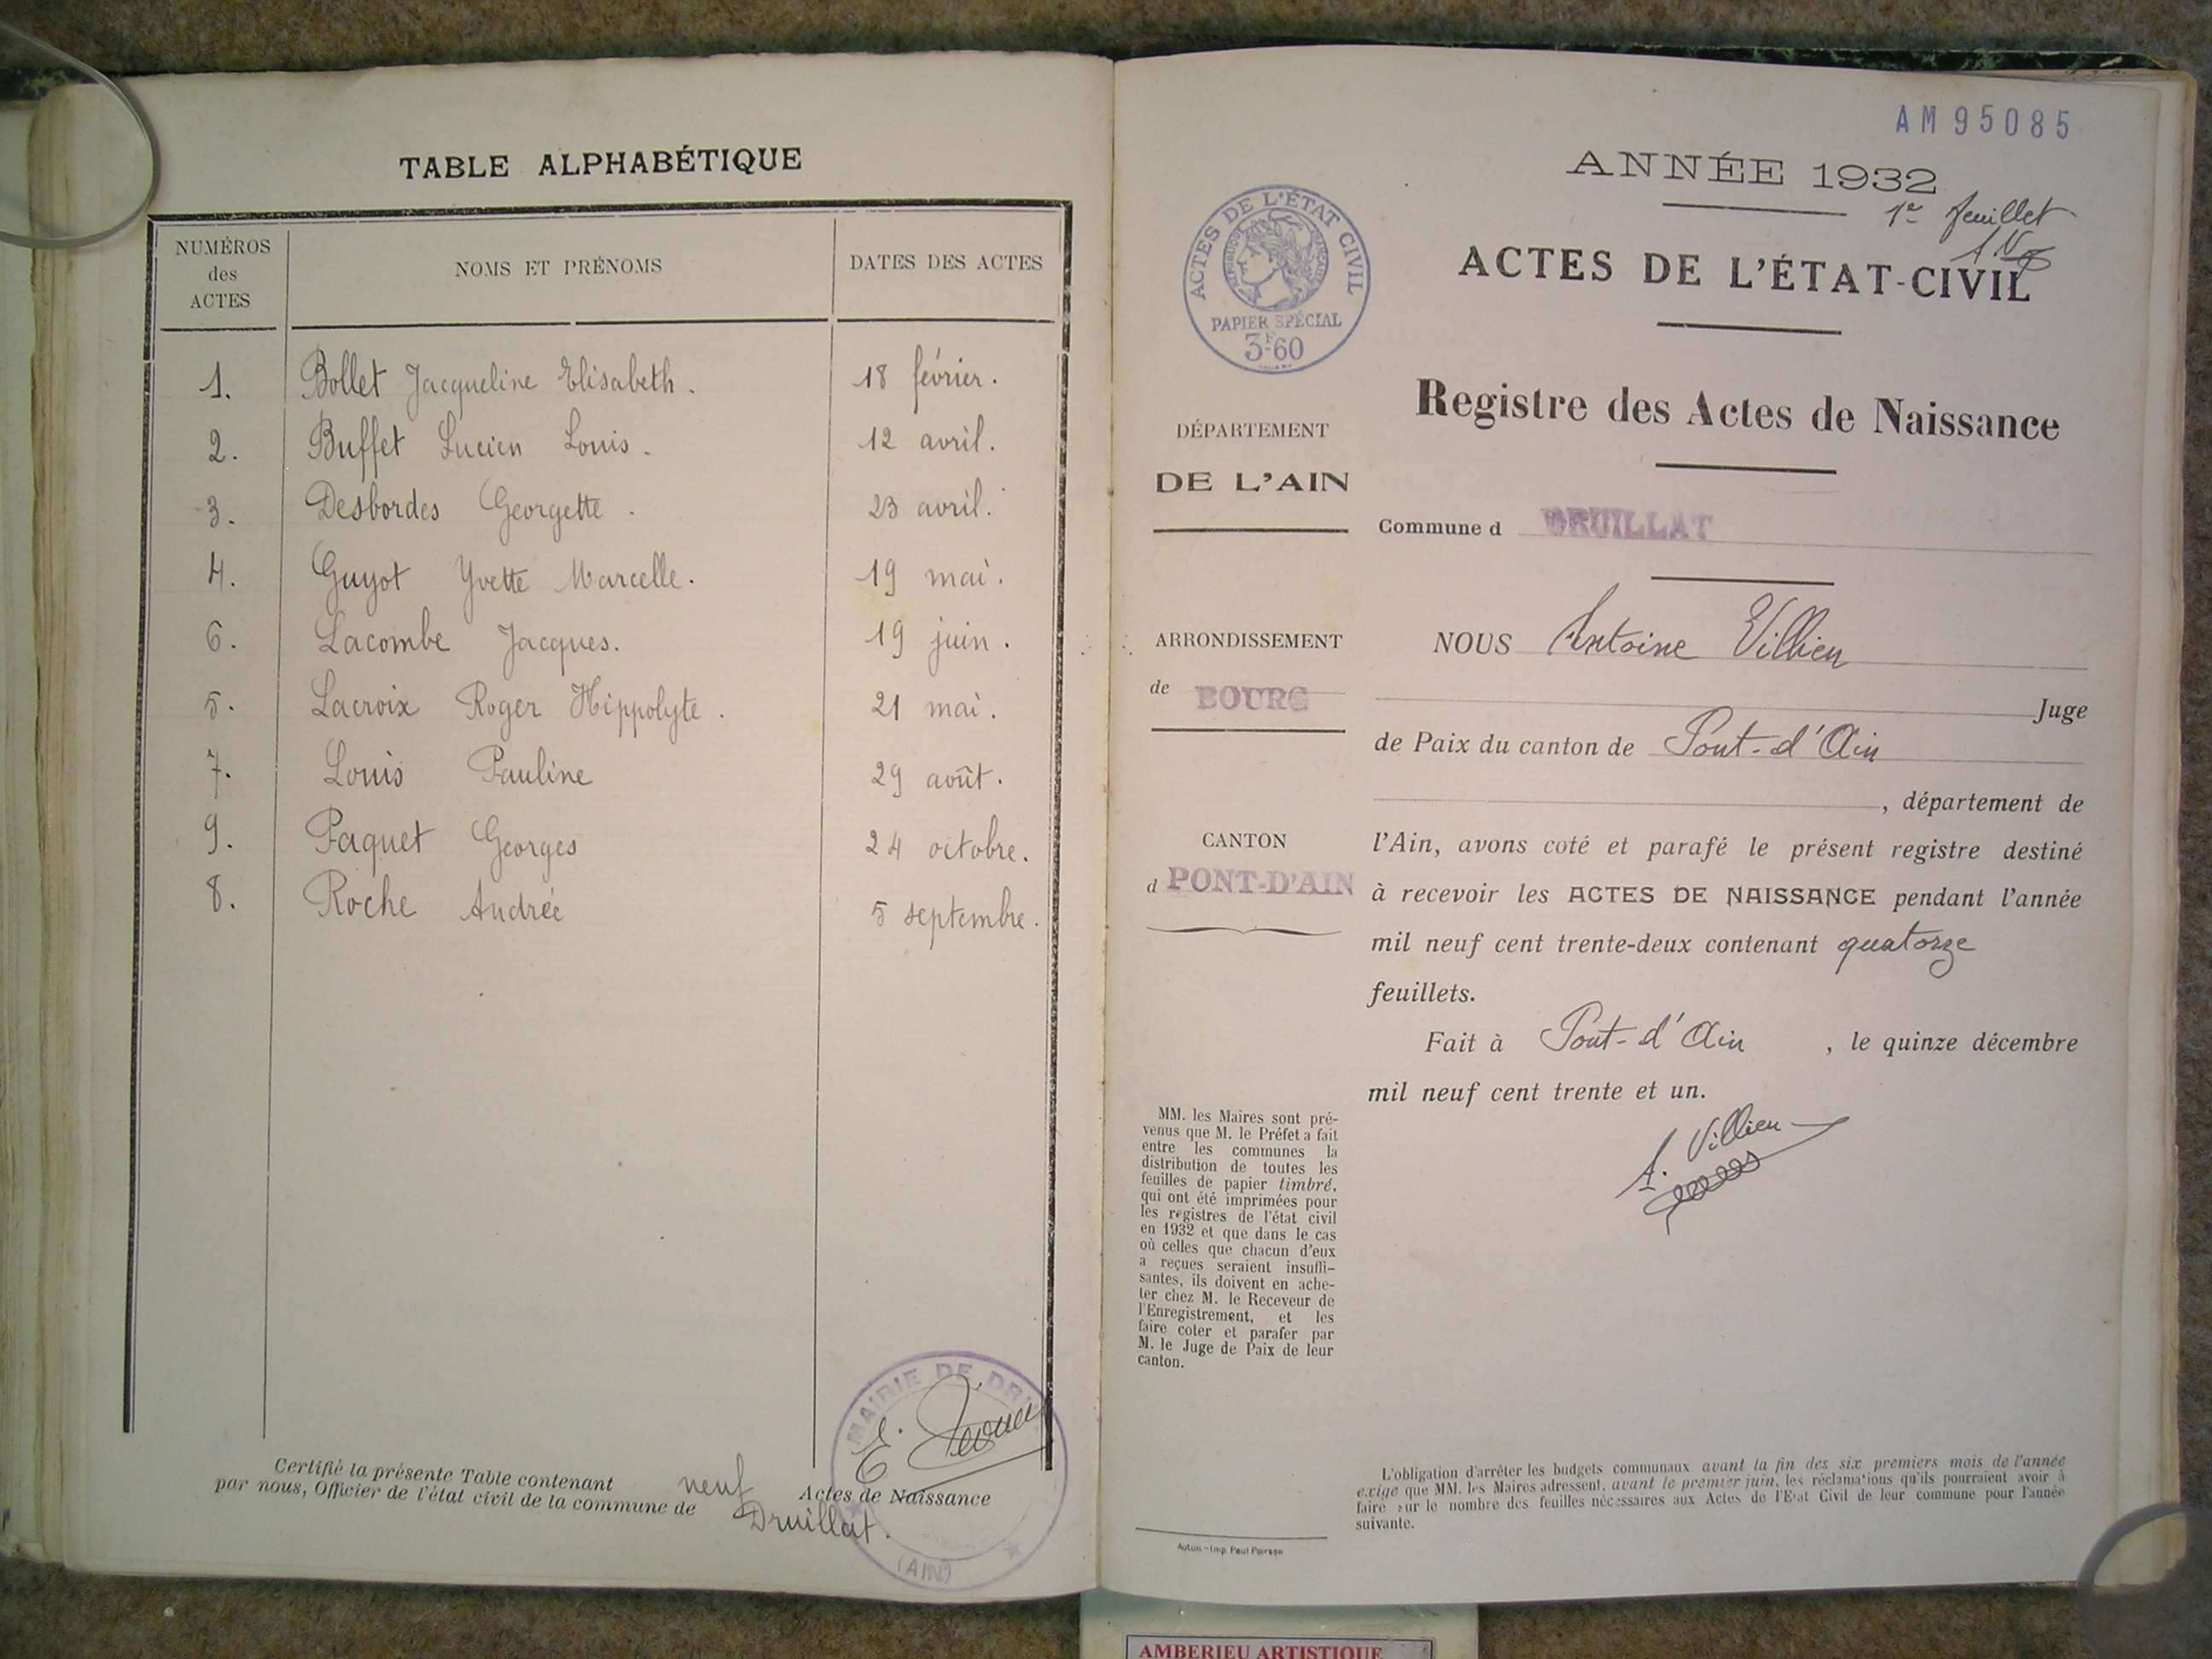 TABLE ALPHABÉTIQUE
NUMÉROS
des
ACTES
NOMS ET PRÉNOMS
DATES DES ACTES
1. Bollet Jacqueline Elisabeth. 18 février.
2. Buffet Lucien Louis. 12 avril.
3. Desbordes Georgette. 23 avril.
4. Guyot Yvette Marcelle. 19 mai.
6. Lacombe Jacques. 19 juin.
5. Lacroix Roger Hippolyte. 21 mai.
7. Louis Pauline 29 août.
9. Paquet Georges 24 octobre.
8. Roche Andrée 5 septembre.
Certifié la présente Table contenant neuf Actes de Naissance
par nous, Officier de l'état civil de la commune de Druillat.
MAIRIE DE DRU
(AIN)
AM95085
ANNÉE 1932
1er feuillet
ACTES DE L'ÉTAT-CIVIL
ACTES DE L'ÉTAT CIVIL
RÉPUBLIQUE FRANÇAISE
PAPIER SPÉCIAL
3F60
Registre des Actes de Naissance
DÉPARTEMENT
DE L'AIN
Commune d DRUILLAT
ARRONDISSEMENT
de BOURG
CANTON
d PONT-D'AIN
NOUS Antoine Villien
Juge
de Paix du canton de Pont-d'Ain
, département de
l'Ain, avons coté et parafé le présent registre destiné
à recevoir les ACTES DE NAISSANCE pendant l'année
mil neuf cent trente-deux contenant quatorze
feuillets.
Fait à Pont-d'Ain , le quinze décembre
mil neuf cent trente et un.
A. Villien
MM. les Maires sont pré-
venus que M. le Préfet a fait
entre les communes la
distribution de toutes les
feuilles de papier timbré,
qui ont été imprimées pour
les registres de l'état civil
en 1932 et que dans le cas
où celles que chacun d'eux
a reçues seraient insuffi-
santes, ils doivent en ache-
ter chez M. le Receveur de
l'Enregistrement, et les
faire coter et parafer par
M. le Juge de Paix de leur
canton.
L'obligation d'arrêter les budgets communaux avant la fin des six premiers mois de l'année
exige que MM. les Maires adressent, avant le premier juin, les réclamations qu'ils pourraient avoir à
faire sur le nombre des feuilles nécessaires aux Actes de l'Etat Civil de leur commune pour l'année
suivante.
Autun - Imp. Paul Poirson
AMBERIEU ARTISTIQUE